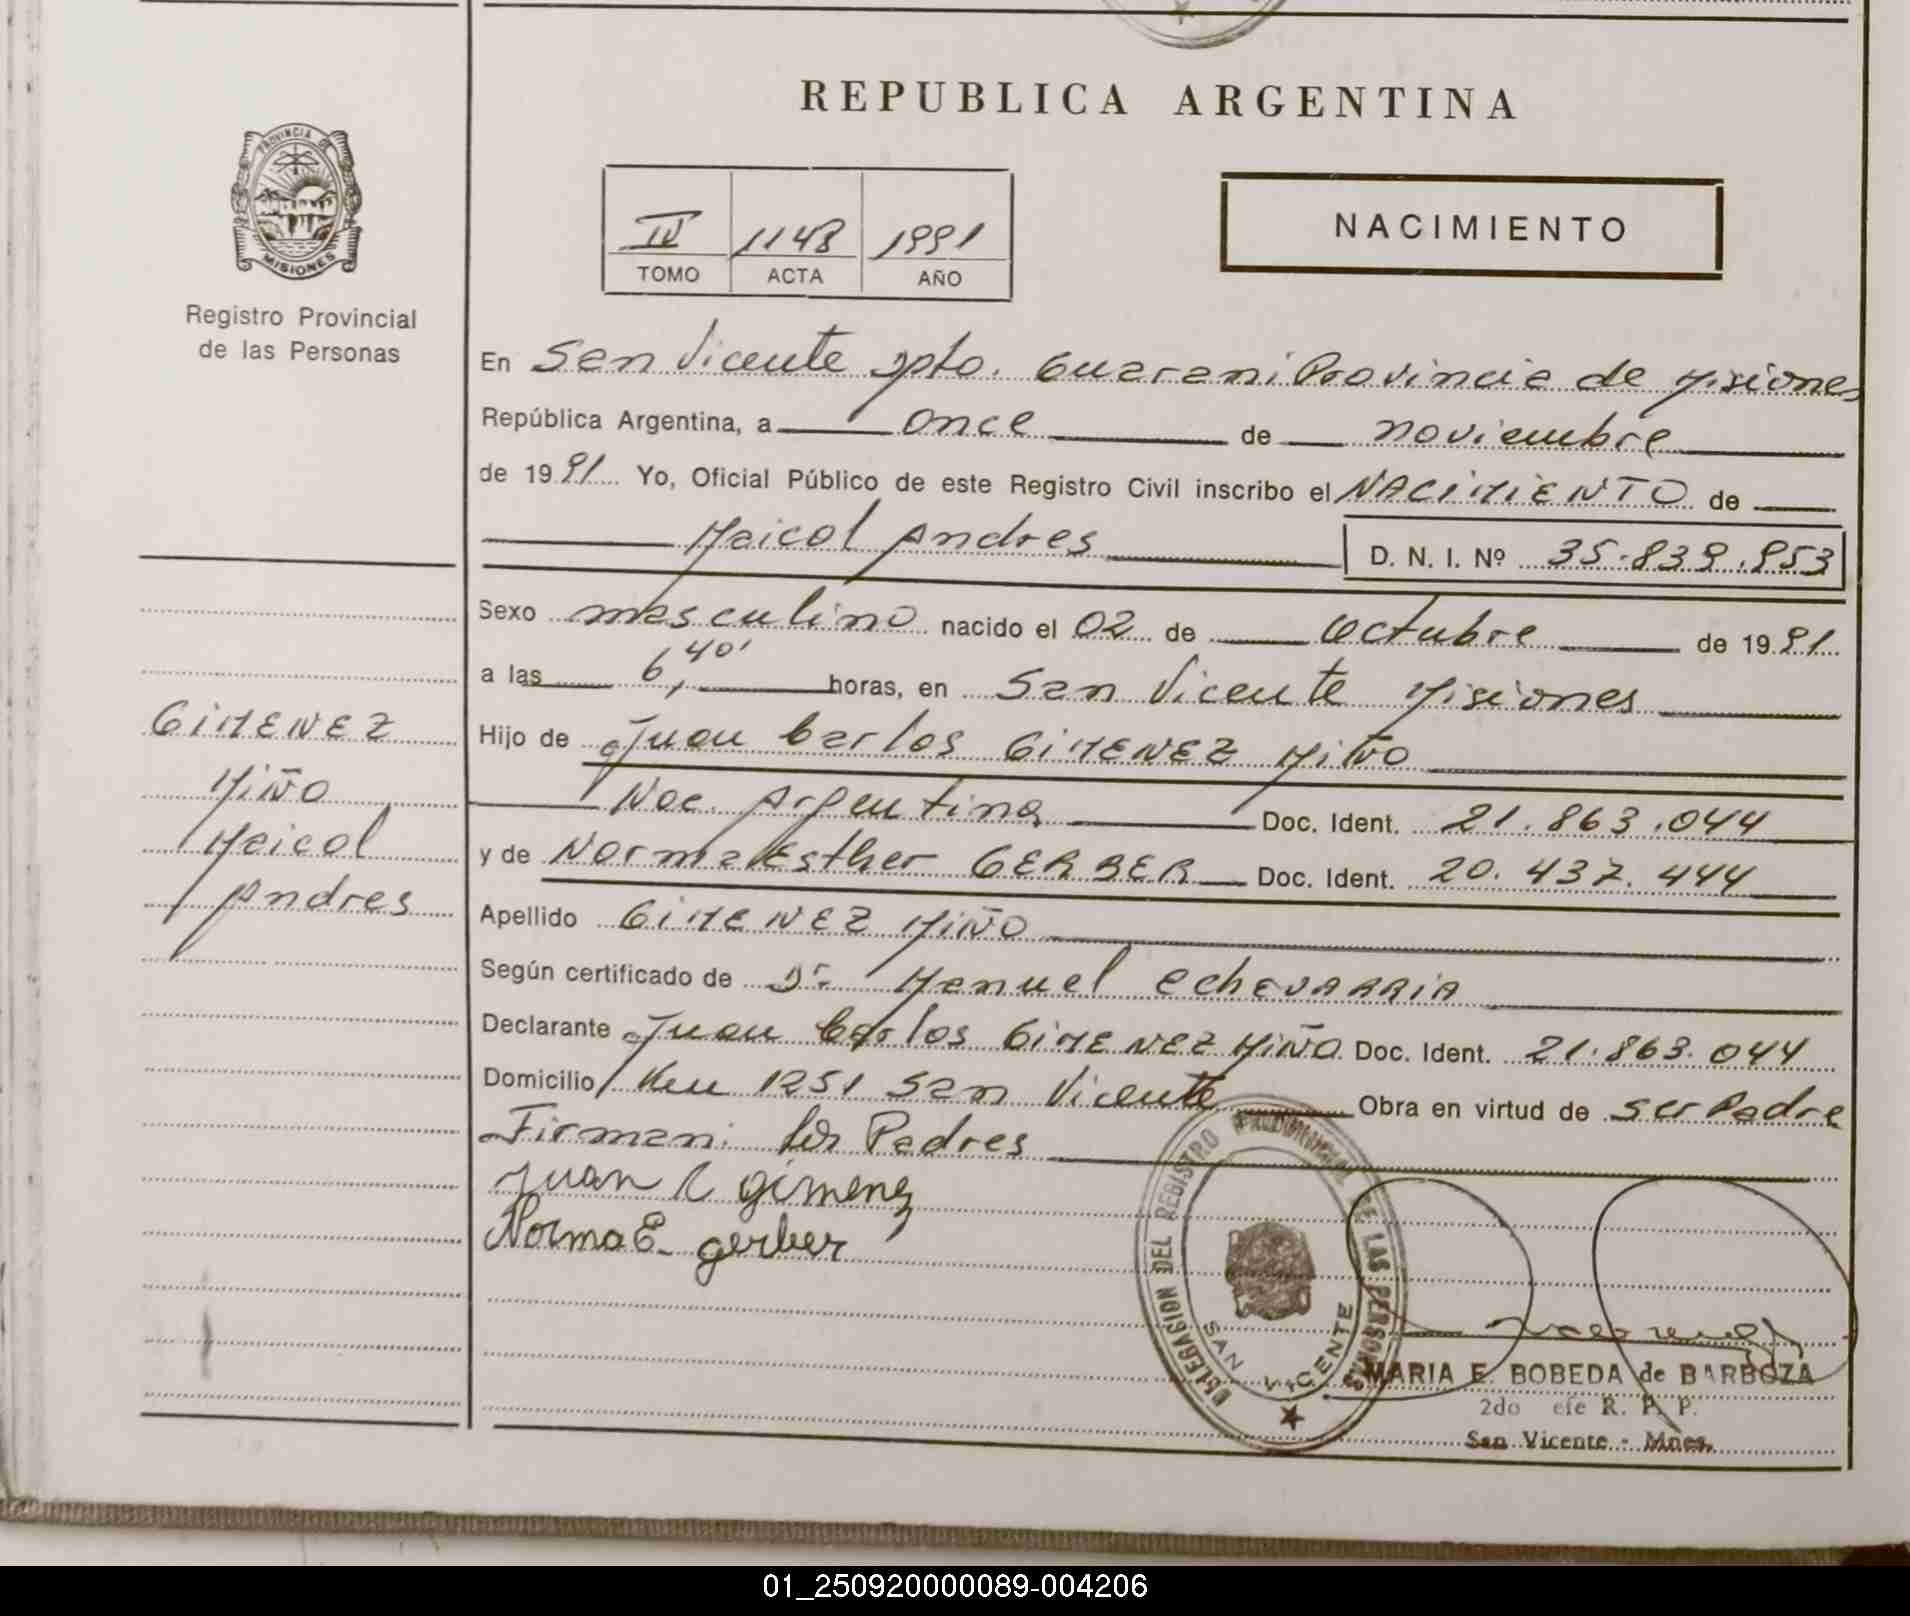 REPUBLICA ARGENTINA
PROVINCIA DE
MISIONES
Registro Provincial
de las Personas
IV 1148 1991
TOMO ACTA AÑO
NACIMIENTO
En San Vicente Dpto. Guarani Provincia de Misiones
República Argentina, a once de noviembre
de 1991 Yo, Oficial Público de este Registro Civil inscribo el NACIMIENTO de
Maicol Andres D. N. I. Nº 35.839.953
Sexo masculino nacido el 02 de Octubre de 1991
a las 6,40' horas, en San Vicente Misiones
Hijo de Juan Carlos GIMENEZ MIÑO
Nac. Argentina Doc. Ident. 21.863.044
y de Norma Esther GERBER Doc. Ident. 20.437.444
Apellido GIMENEZ MIÑO
Según certificado de Dr. Manuel EchEVARRIA
Declarante Juan Carlos GIMENEZ MIÑO Doc. Ident. 21.863.044
Domicilio Km 1251 San Vicente Obra en virtud de ser Padre
Firman: los Padres
Juan C gimenez
Norma E. gerber
GIMENEZ
MIÑO
Maicol
Andres
DELEGACION DEL REGISTRO PROVINCIAL DE LAS PERSONAS
SAN VICENTE
MARIA E. BOBEDA de BARBOZA
2do efe R. P. P.
San Vicente - Mnes.
01_250920000089-004206